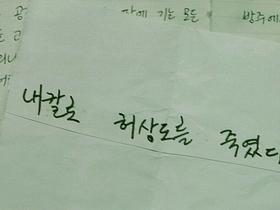 공
땅에 기는 모든
방주에
내칼로 허상도를 죽였다